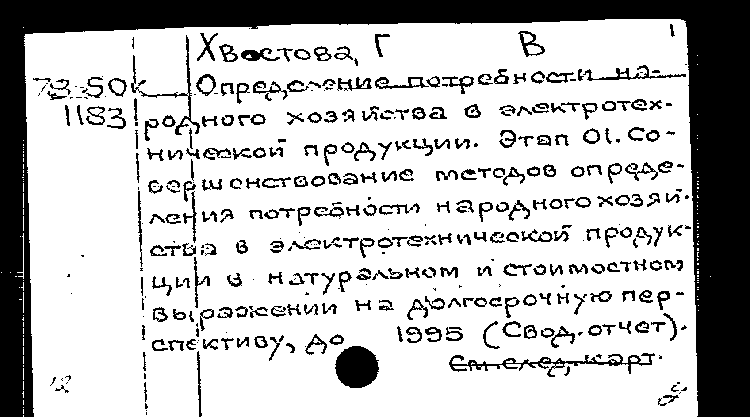 Хвостова, Г В 1
78-50К Определение потребности на-
1183 родного хозяйства в электротех-
нической продукции. Этап 01. Со-
вершенствование методов опреде-
ления потребности народного хозяй-
ства в электротехнической продук-
ции в натуральном и стоимостном
выражении на долгосрочную пер-
спективу, до 1995 (Свод. отчет).
См. след. карт.
12